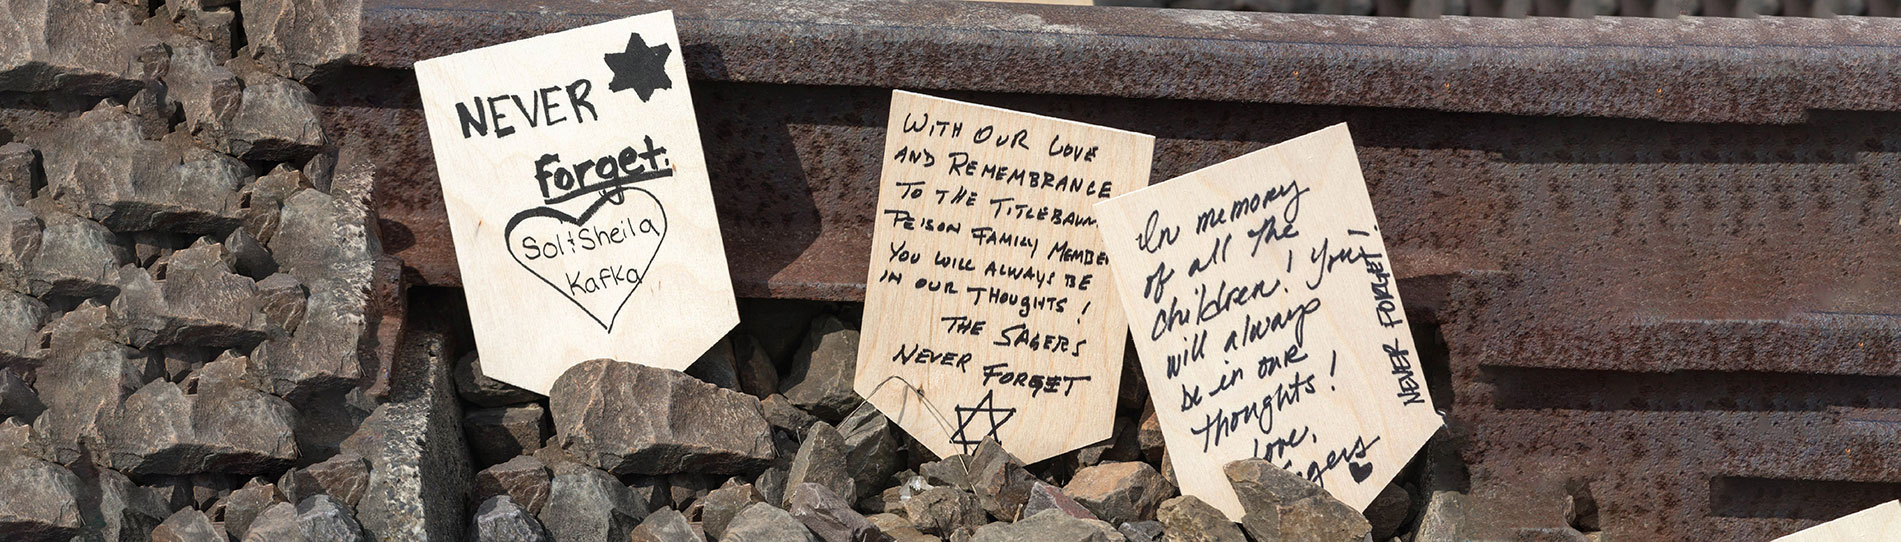 NEVER
forget.
Sol + Sheila
Kafka
WITH OUR LOVE
AND REMEMBRANCE
TO THE TITLEBAUM
PEISON FAMILY MEMBE
YOU WILL ALWAYS BE
IN OUR THOUGHTS!
THE SAGERS
NEVER FORGET
In memory
of all the
children! You
will always
be in our
thoughts!
love,
agers
NEVER FORGET!